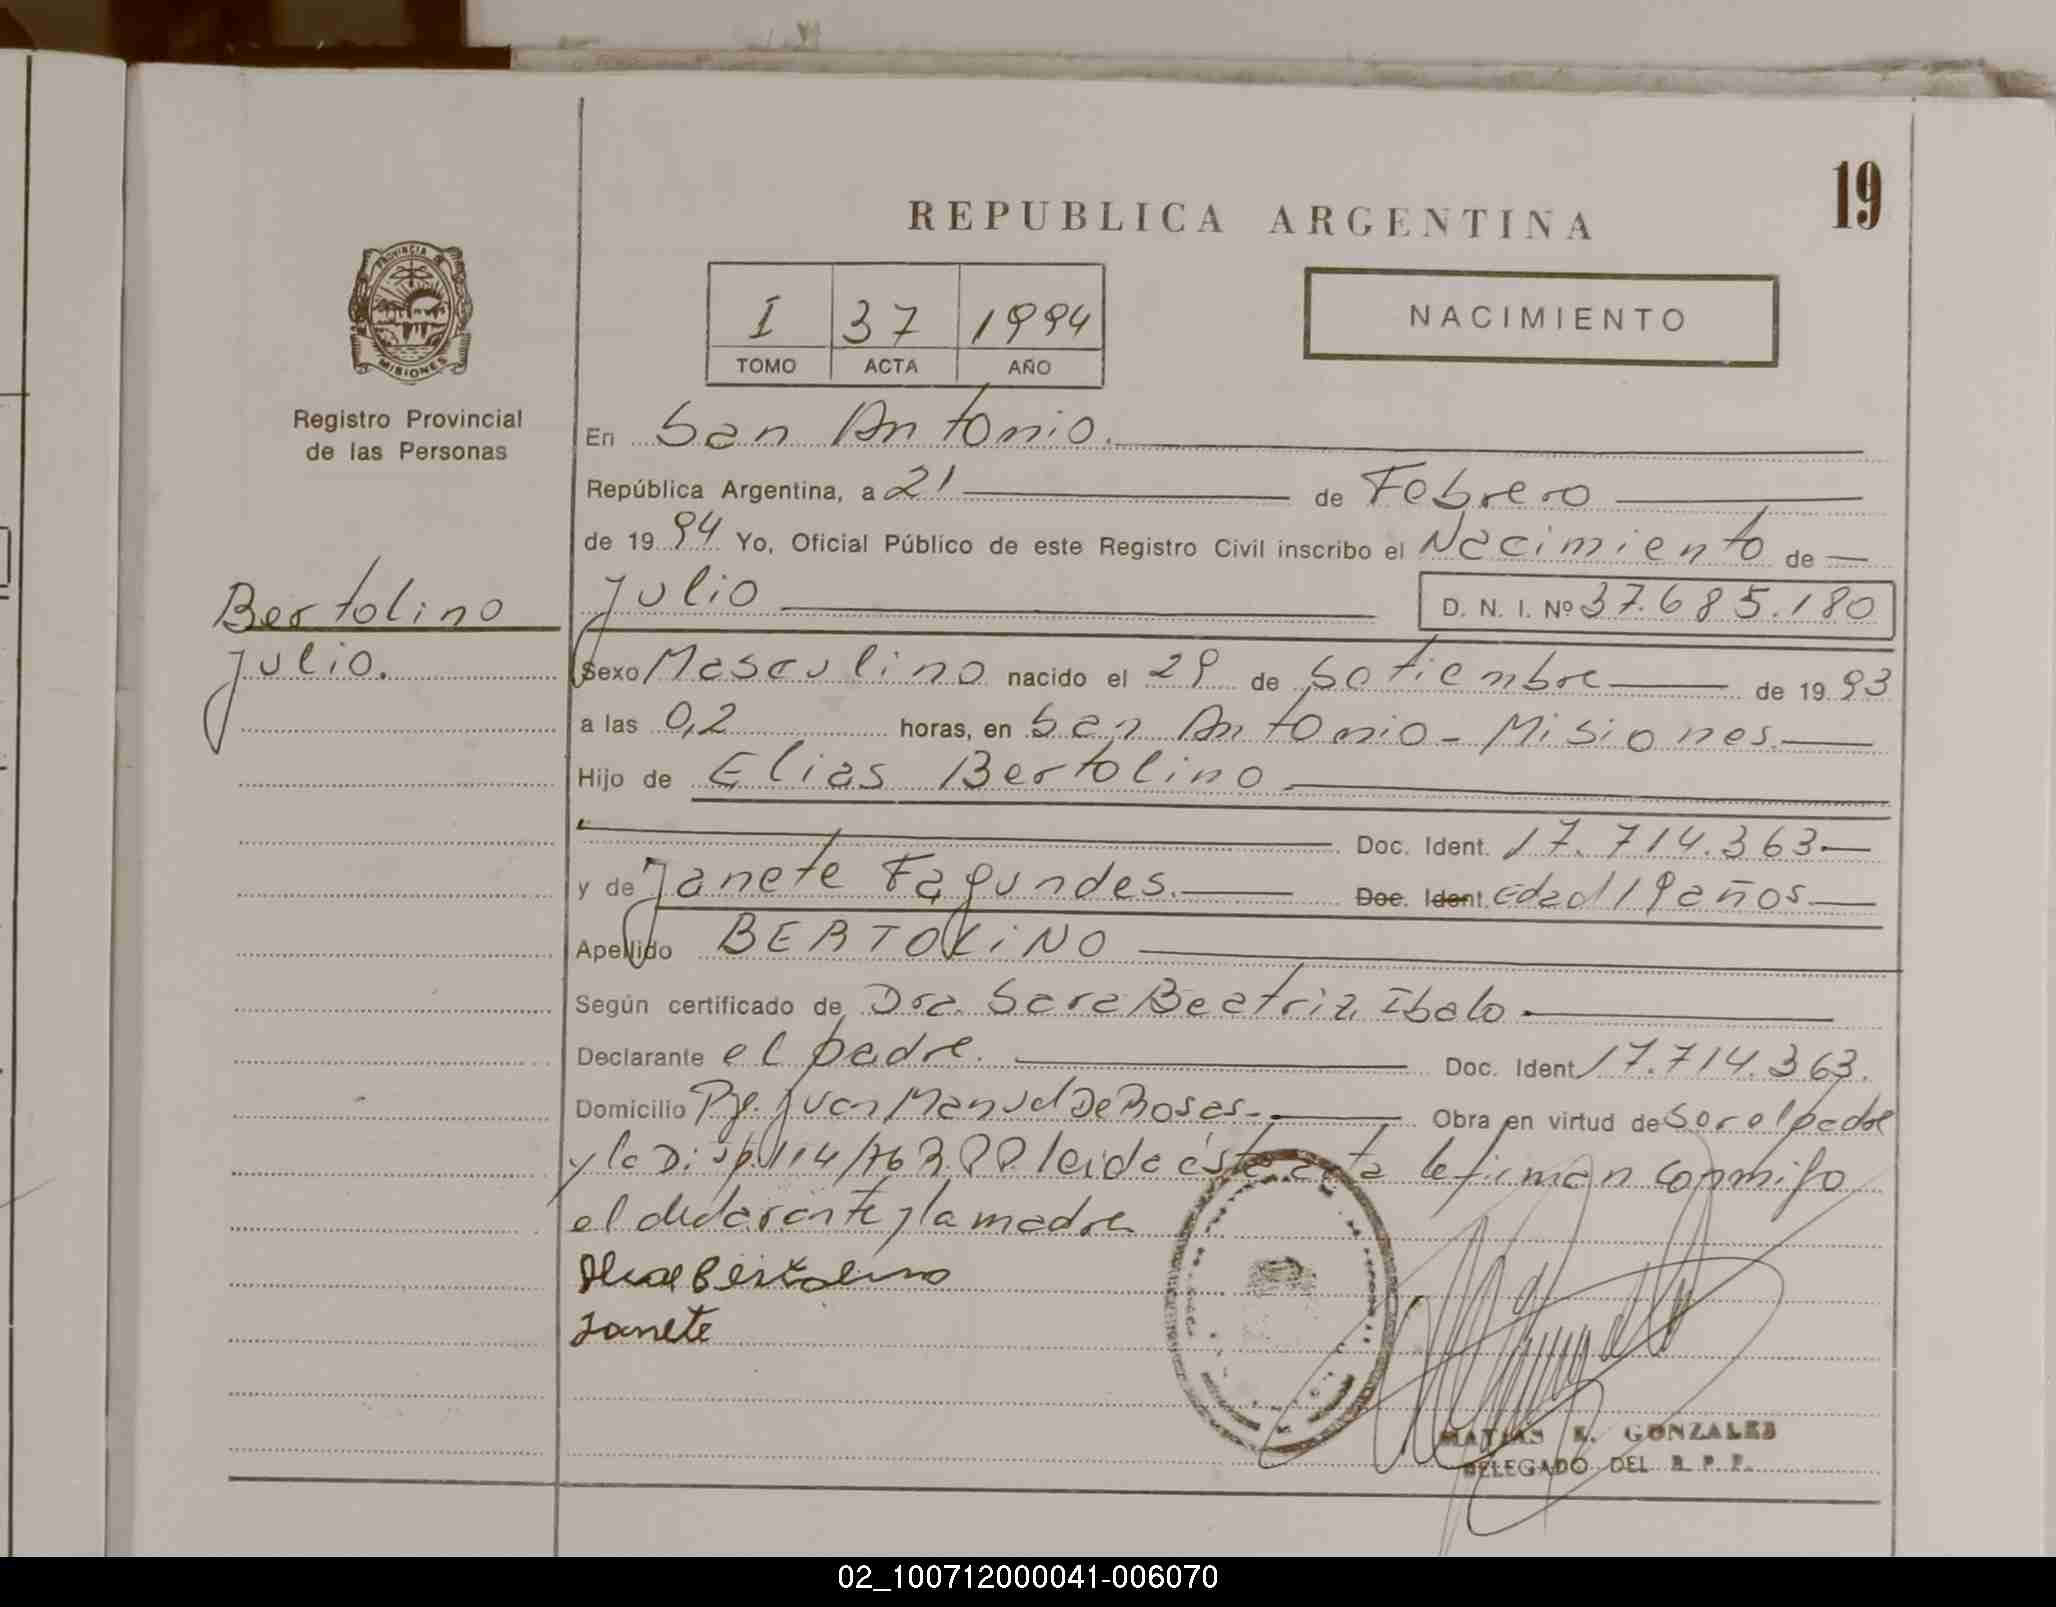 19
REPUBLICA ARGENTINA
PROVINCIA DE
MISIONES
Registro Provincial
de las Personas
I 37 1994
TOMO ACTA AÑO
NACIMIENTO
En San Antonio.
República Argentina, a 21 de Febrero
de 1994 Yo, Oficial Público de este Registro Civil inscribo el Nacimiento de
Bertolino
Julio.
Julio D. N. I. Nº 37.685.180
Sexo Masculino nacido el 29 de Setiembre de 1993
a las 0,2 horas, en San Antonio - Misiones.
Hijo de Elias Bertolino
Doc. Ident. 17.714.363.
y de Janete Fagundes. Doc. Ident. Edad 19 años.
Apellido BERTOLINO
Según certificado de Dra. Sara Beatriz Ibalo.
Declarante el padre. Doc. Ident 17.714.363.
Domicilio Pje. Juan Manuel De Rosas. Obra en virtud de Ser el padre
y la Disp. 114/76 R.P.P. leida ésta acta la firman conmigo
el declarante y la madre
Bertolino
Janete
MATIAS R. GONZALES
DELEGADO DEL R. P. P.
02_100712000041-006070